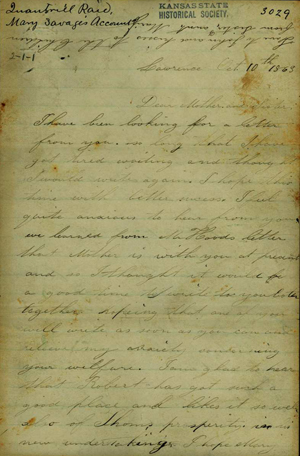 Quantrill Raid,
Mary Savage's Account
2-1-1
KANSAS STATE
HISTORICAL SOCIETY.
3029
Lawrence Oct 10th 1863
Dear Mother and
I have been looking for a letter
from you so long that I have
got tired waiting and thought
I would write again. I hope this
time with better success I feel
quite anxious to hear from you
we learned from letter
that Mother is with you at present
and as I thought it would be
a good time to write to you both
together hoping that one of you
will write as soon as you can and
relieve my anxiety concerning
your welfare. I am glad to hear
that Robert has got such a
good place and likes it so well
also of prosperity in his
new undertaking. I hope Mary